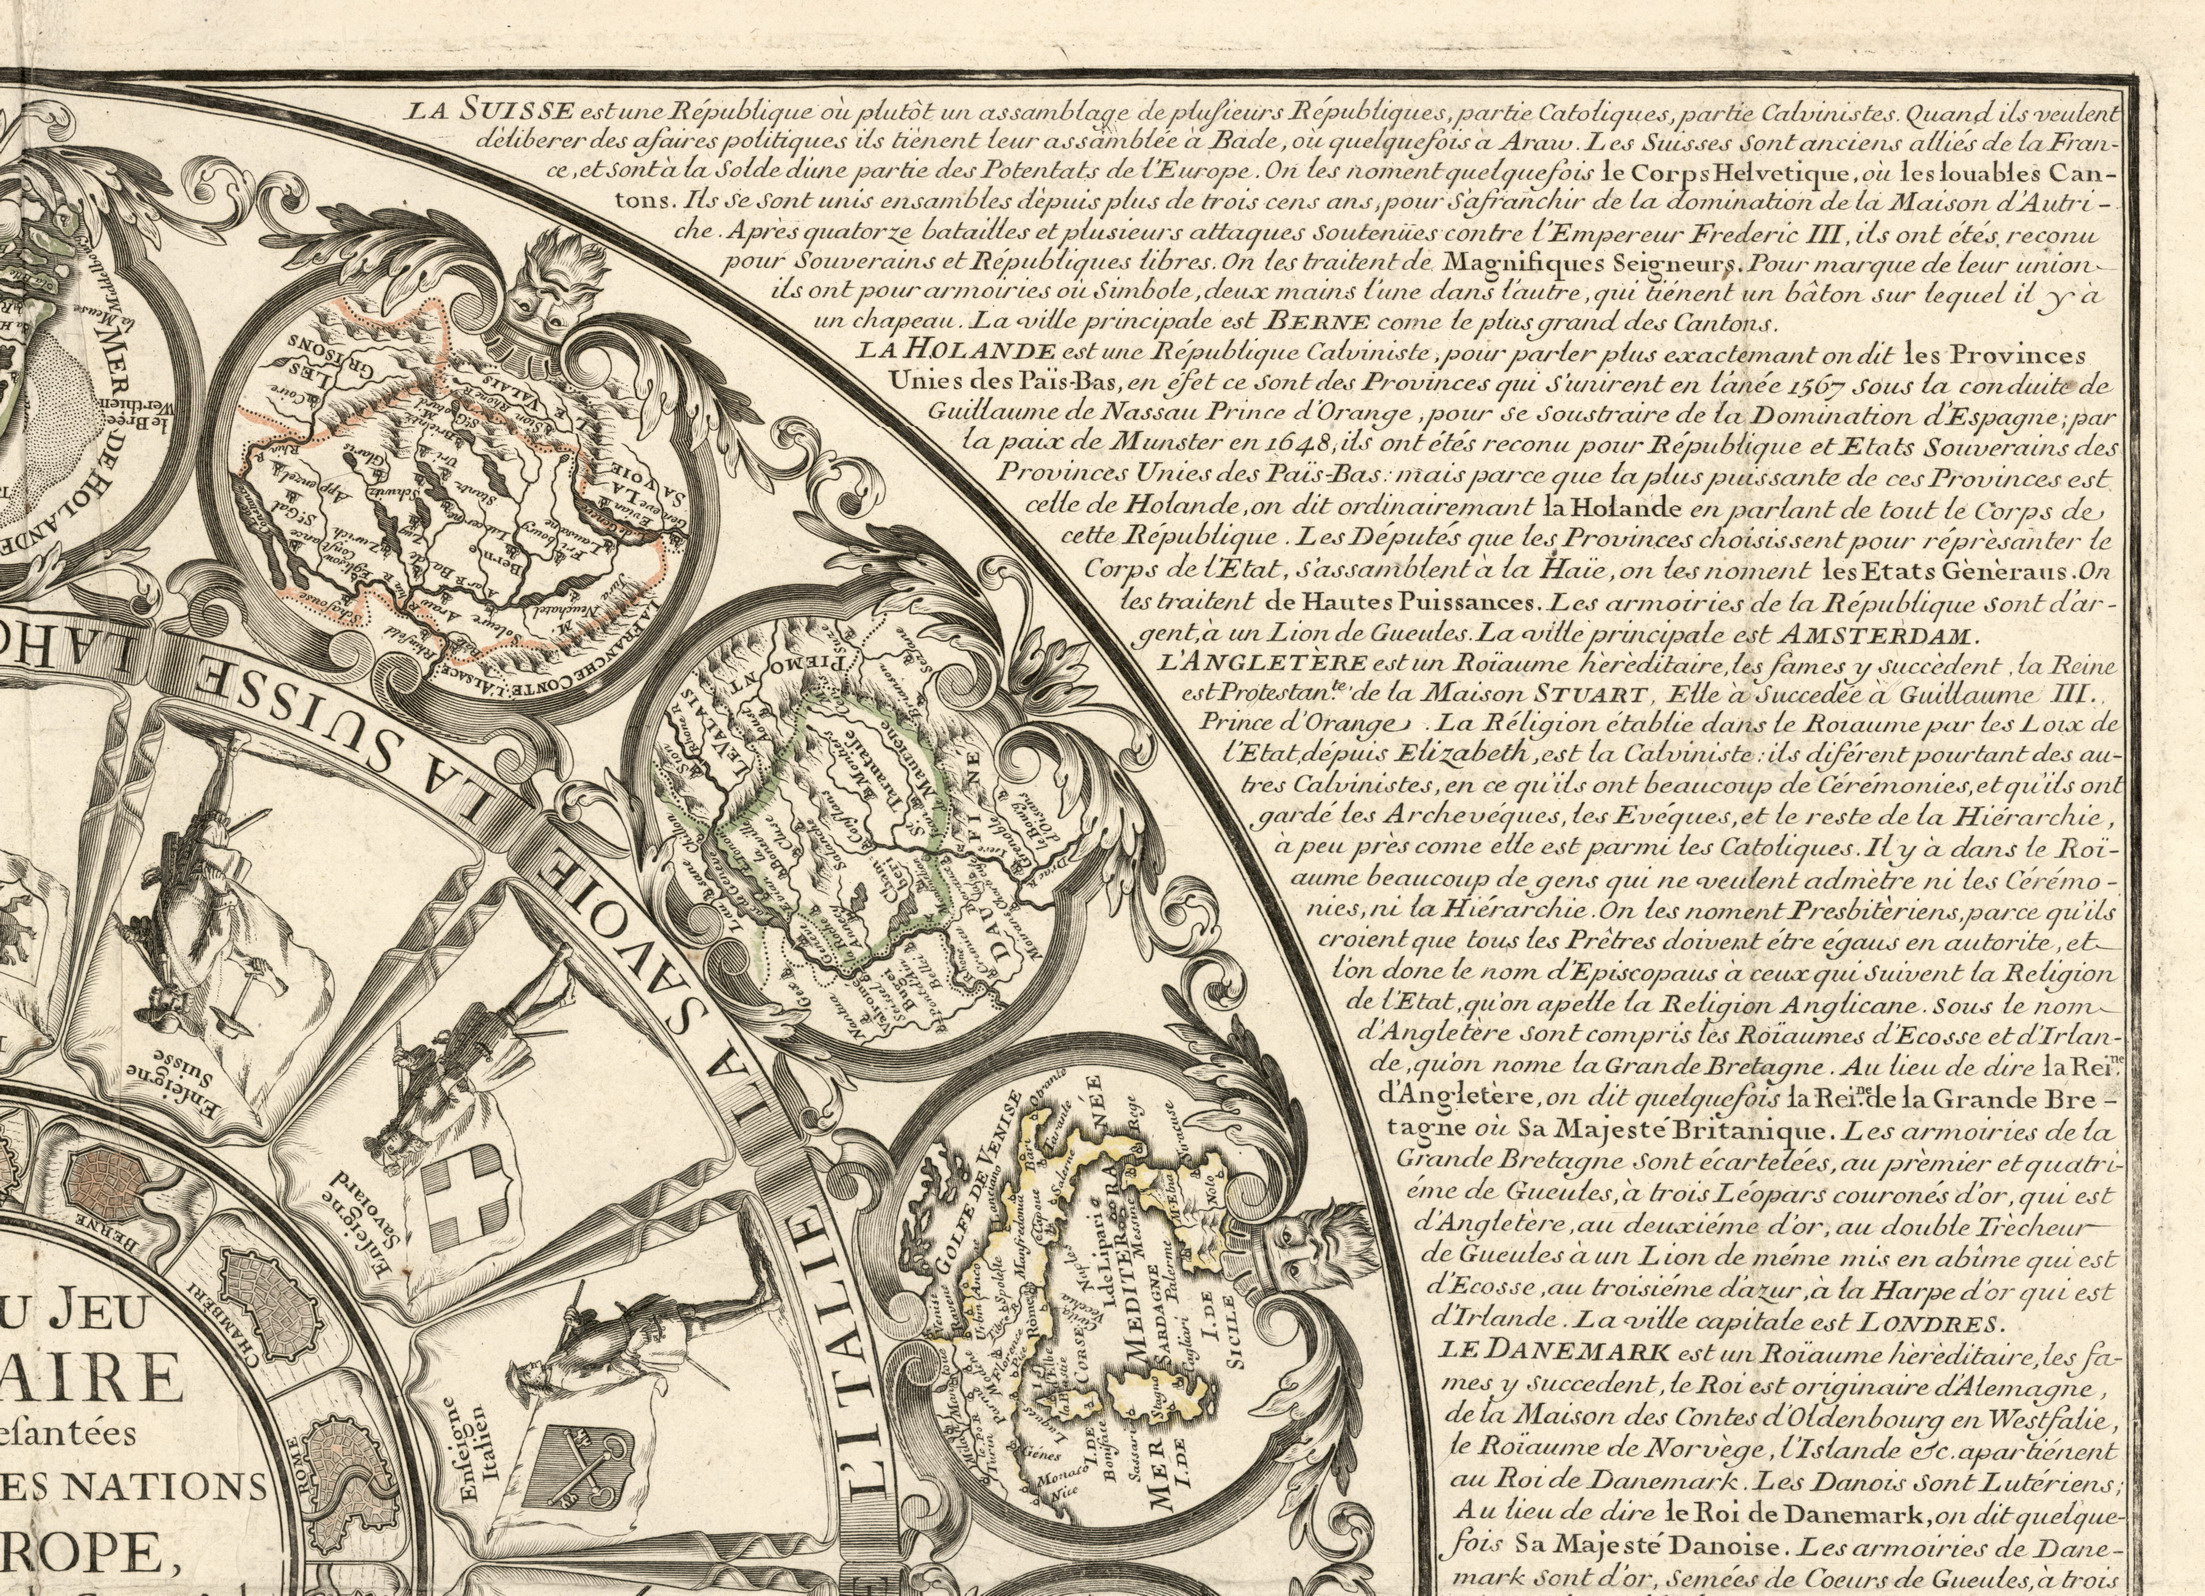 LA SUISSE est une République où plutôt un assamblage de plusieurs Républiques, partie Catoliques, partie Calvinistes. Quand ils veulent
déliberer des afaires politiques ils tiènent leur assàmblée à Bade, où quelquefois à Araw. Les Suisses sont anciens alliés de la Fran-
ce, et sont à la Solde d'une partie des Potentats de l'Europe. On les noment quelquefois le Corps Helvetique, où les louables Can-
tons. Ils se sont unis ensambles dèpuis plus de trois cens ans, pour s'afranchir de la domination de la Maison d'Autri-
che. Après quatorze batailles et plusieurs attaques soutenües contre l'Empereur Frederic III, ils ont étés reconu
pour Souverains et Républiques libres. On les traitent de Magnifiques Seigneurs. Pour marque de leur union
ils ont pour armoiries où Simbole, deux mains l'une dans l'autre, qui tiénent un bâton sur lequel il y à
un chapeau. La ville principale est BERNE come le plus grand des Cantons.
LA HOLANDE est une République Calviniste, pour parler plus exactemant on dit les Provinces
Unies des Païs-Bas, en éfet ce sont des Provinces qui s'unirent en l'ánée 1567 sous la conduite de
Guillaume de Nassau Prince d'Orange, pour se soustraire de la Domination d'Espagne; par
la paix de Munster en 1648, ils ont étés reconu pour République et Etats Souverains des
Provinces Unies des Païs-Bas: mais parce que la plus puissante de ces Provinces est
celle de Holande, on dit ordinairemant la Holande en parlant de tout le Corps de
cette République. Les Députés que les Provinces choisissent pour réprèsanter le
Corps de l'Etat, s'assamblent à la Haïe, on les noment les Etats Gènèraus. On
les traitent de Hautes Puissances. Les armoiries de la République sont d'ar-
gent, à un Lion de Gueules. La ville principale est AMSTERDAM.
L'ANGLETÈRE est un Roïaume hèrèditaire, les fames y succèdent, la Reine
est Protestante de la Maison STUART, Elle à Succedée à Guillaume III.
Prince d'Orange. La Réligion établie dans le Roiaume par les Loix de
l'Etat, dépuis Elizabeth, est la Calviniste: ils diférent pourtant des au-
tres Calvinistes, en ce qu'ils ont beaucoup de Cérémonies, et qu'ils ont
gardé les Archevéques, les Evéques, et le reste de la Hiérarchie,
à peu près come elle est parmi les Catoliques. Il y à dans le Roï-
aume beaucoup de gens qui ne veulent admètre ni les Cérémo-
nies, ni la Hiérarchie. On les noment Presbitèriens, parce qu'ils
croient que tous les Prêtres doivent étre égaus en autorite, et
l'on done le nom d'Episcopaus à ceux qui suivent la Religion
de l'Etat, qu'on apelle la Religion Anglicane. Sous le nom
d'Angletère sont compris les Roïaumes d'Ecosse et d'Irlan-
de, qu'on nome la Grande Bretagne. Au lieu de dire la Reine
d'Angletère, on dit quelquefois la Reine de la Grande Bre-
tagne où Sa Majesté Britanique. Les armoiries de la
Grande Bretagne sont écartelées, au prèmier et quatri-
éme de Gueules, à trois Léopars couronés d'or, qui est
d'Angletère, au deuxiéme d'or, au double Trècheur
de Gueules à un Lion de méme mis en abîme qui est
d'Ecosse, au troisiéme d'azur, à la Harpe d'or qui est
d'Irlande. La ville capitale est LONDRES.
LE DANEMARK est un Roïaume hèrèditaire, les fa-
mes y succedent, le Roi est originaire d'Alemagne,
de la Maison des Contes d'Oldenbourg en Westfalie,
le Roïaume de Norvège, l'Islande &c. apartiénent
au Roi de Danemark. Les Danois sont Lutériens;
Au lieu de dire le Roi de Danemark, on dit quelque-
fois Sa Majesté Danoise. Les armoiries de Dane-
mark sont d'or, semées de Coeurs de Gueules, à trois
LA HO
LA SUISSE
LA SAVOIE
L'ITALIE
MER DE HOLANDE
LES GRISONS
LE VALAIS
LA SAVOIE
Coire
Appenzel
St. Gal
Zurich
Schwitz
Glaris
Uri
Berne
Fribourg
Lausane
Evian
Geneve
Neuchatel
Soleure
Schafouse
Rhinfeld
L'ALSACE
LA FRANCHE CONTE
PIEMONT
LE VALAIS
Tarantaise
St. Jean de Maurienne
Briançon
Grenoble
le Bourg d'Oisans
DAUFINE
Chamberi
Annecy
Salanche
Cluse
Boneville
Chillon
Lausane
Gex
Nantua
Seissel
Bugei
GOLFE DE VENISE
MER MEDITERRANÉE
Otrante
Tarante
Bari
Salerne
Rege
Siracuse
Noto
Messine
Palerme
Manfredonia
Capoue
Rome
I. de Lipari
I. DE SICILE
I. DE SARDAGNE
I. DE CORSE
Cagliari
Sassari
Boniface
Gènes
Monaco
Nice
Turin
Enseigne
Suisse
Enseigne
Savoiard
Enseigne
Italien
BERNE
CHAMBERI
ROME
U JEU
AIRE
esantées
ES NATIONS
ROPE,